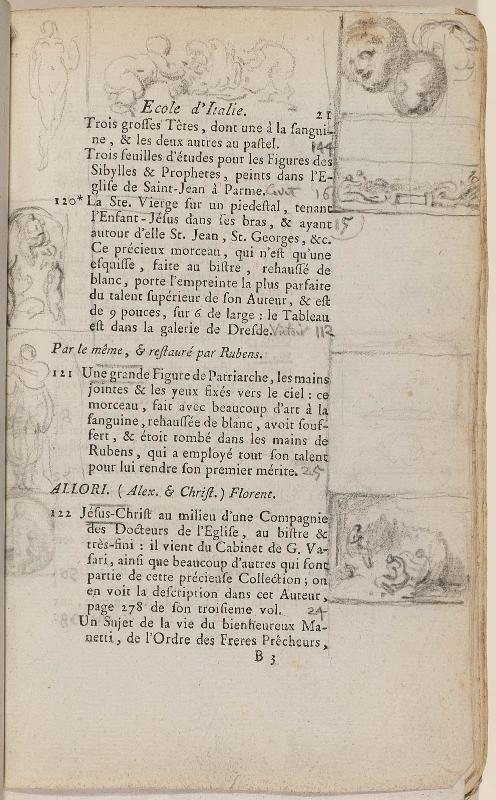 Ecole d'Italie. 21
Trois grosses Têtes, dont une à la sangui-
ne, & les deux autres au pastel. 144
Trois feuilles d'études pour les Figures des
Sibylles & Prophetes, peints dans l'E-
glise de Saint-Jean à Parme. 16
120* La Ste. Vierge sur un piedestal, tenant
l'Enfant-Jésus dans ses bras, & ayant 15
autour d'elle St. Jean, St. Georges, &c.
Ce précieux morceau, qui n'est qu'une
esquisse, faite au bistre, rehaussé de
blanc, porte l'empreinte la plus parfaite
du talent supérieur de son Auteur, & est
de 9 pouces, sur 6 de large: le Tableau
est dans la galerie de Dresde. 112
Par le même, & restauré par Rubens.
121 Une grande Figure de Patriarche, les mains
jointes & les yeux fixés vers le ciel: ce
morceau, fait avec beaucoup d'art à la
sanguine, rehaussée de blanc, avoit souf-
fert, & étoit tombé dans les mains de
Rubens, qui a employé tout son talent
pour lui rendre son premier mérite. 25
ALLORI. (Alex. & Christ.) Florent.
122 Jésus-Christ au milieu d'une Compagnie
des Docteurs de l'Eglise, au bistre &
très-fini: il vient du Cabinet de G. Va-
sari, ainsi que beaucoup d'autres qui font
partie de cette précieuse Collection; on
en voit la description dans cet Auteur,
page 278 de son troisieme vol. 24
Un Sujet de la vie du bienheureux Ma-
netti, de l'Ordre des Freres Prêcheurs,
B 3